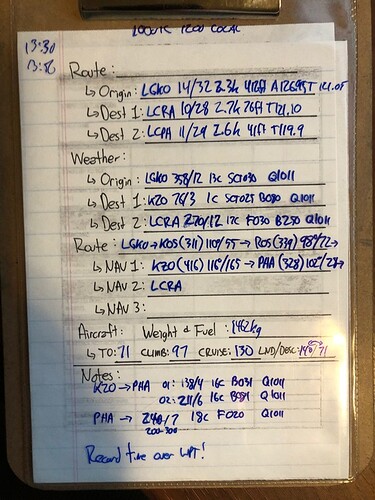 13:30
Route:
↳ Origin: LGKO 14/32 2.3k 412ft A126.95T 121.05
↳ Dest 1: LCRA 10/28 2.7k 76ft T121.10
↳ Dest 2: LCPA 11/29 2.6k 41ft T119.9
Weather:
↳ Origin: LGKO 358/12 13c SCT030 Q1011
↳ Dest 1: KZO 76/3 12c SCT025 BO80 Q1011
↳ Dest 2: LCRA 270/12 17c FO30 B250 Q1011
Route: LGKO → KOS(311) 110°/55 → ROS(339) 98°/72→
↳ NAV 1: KZO(416) 116°/165 → PHA (328) 102°/27→
↳ NAV 2: LCRA
↳ NAV 3:
Aircraft: Weight & Fuel: 1462kg
↳ TO: 71 CLIMB: 97 CRUISE: 130 LND/DESC: 140/71
Notes:
KZO → PHA 01: 138/4 16c BO31 Q1011
02: 211/6 16c Q1011
PHA → 240/7 18c FO20 Q1011
200-300
Record time over WPT!